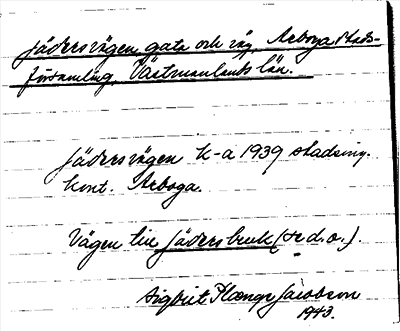 Jädersvägen, gata och väg, Arboga stads-
församling, Västmanlands län.
Jädersvägen K-a 1939 stadsing.
kont. Arboga.
Vägen till Jädersbruk (se d.o.).
Sigbrit Plænge Jacobson
1943.